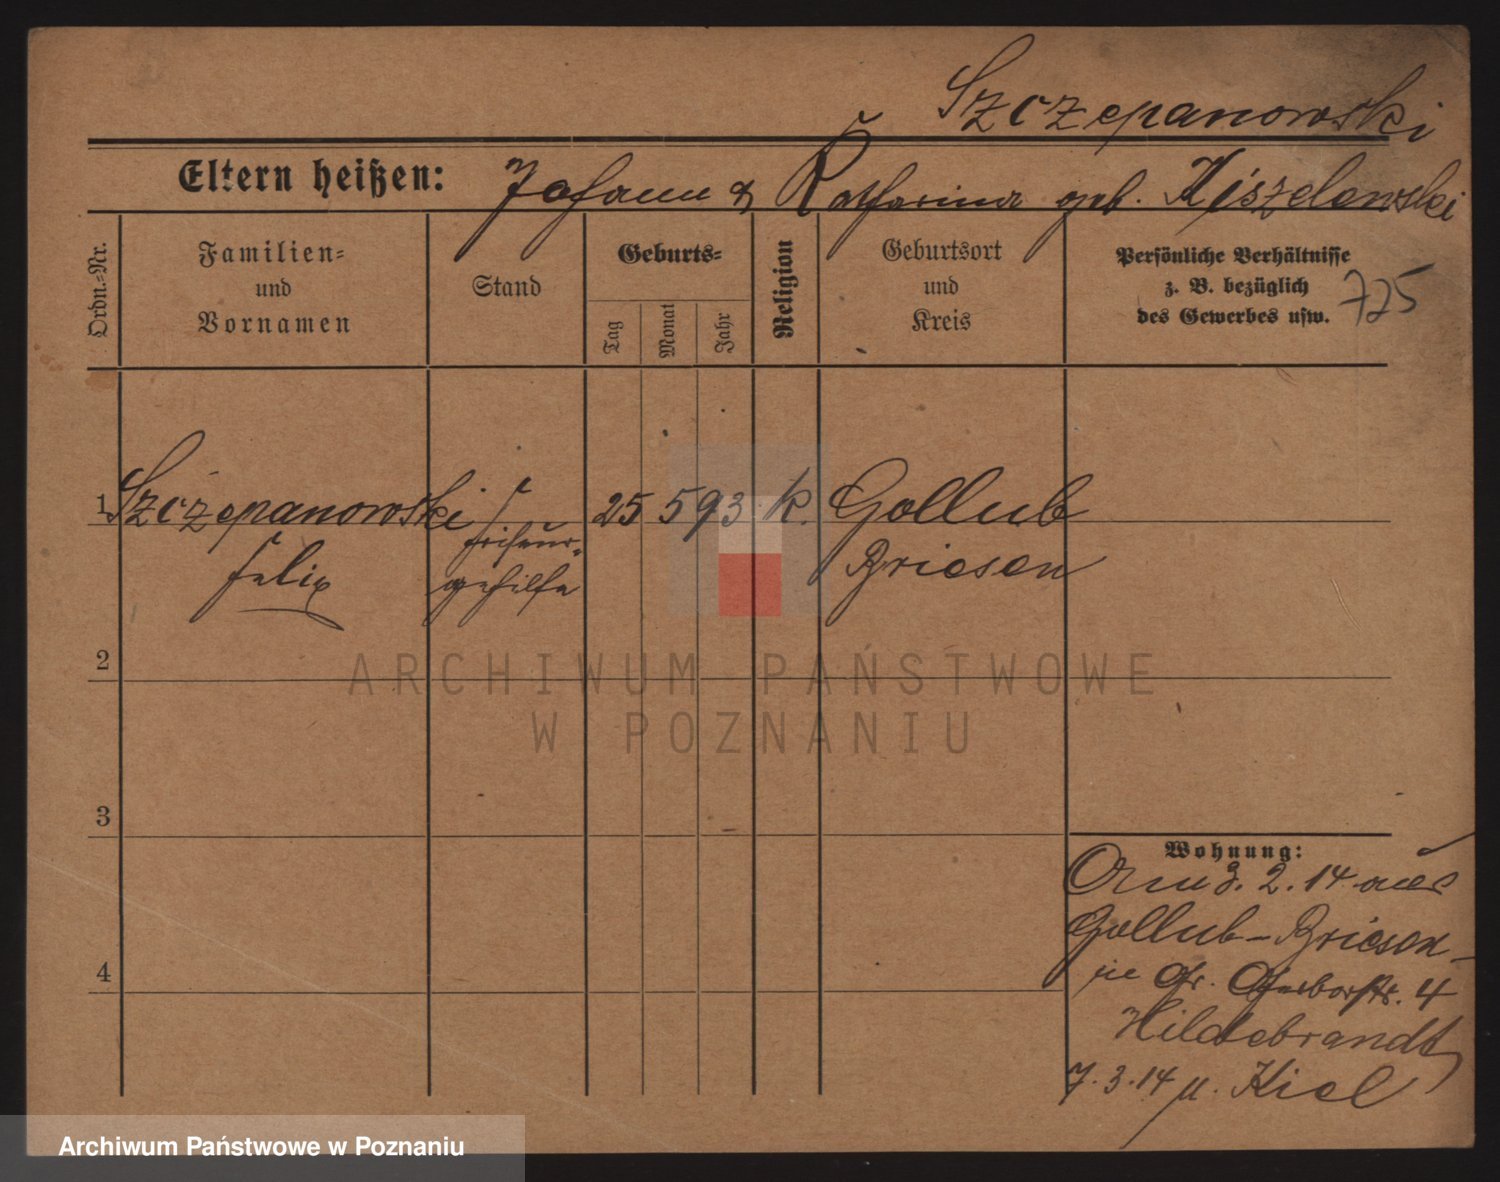 Szczepanowski
Eltern heißen: Johann & Katharina geb. Kiszelewski
Ordn.-Nr.
Familien-
und
Vornamen
Stand
Geburts-
Tag
Monat
Jahr
Religion
Geburtsort
und
Kreis
Persönliche Verhältnisse
z. B. bezüglich
des Gewerbes usw.
725
1 Szczepanowski 25 5 93 k. Gollub
Friseur-
Felix gehilfe Briesen
2
ARCHIWUM PAŃSTWOWE
W POZNANIU
3
Wohnung:
3. 2. 14 aus
Gollub-Briesen
Gr. Gerberstr. 4
Hildebrandt
7. 3. 14 n. Kiel
4
Archiwum Państwowe w Poznaniu